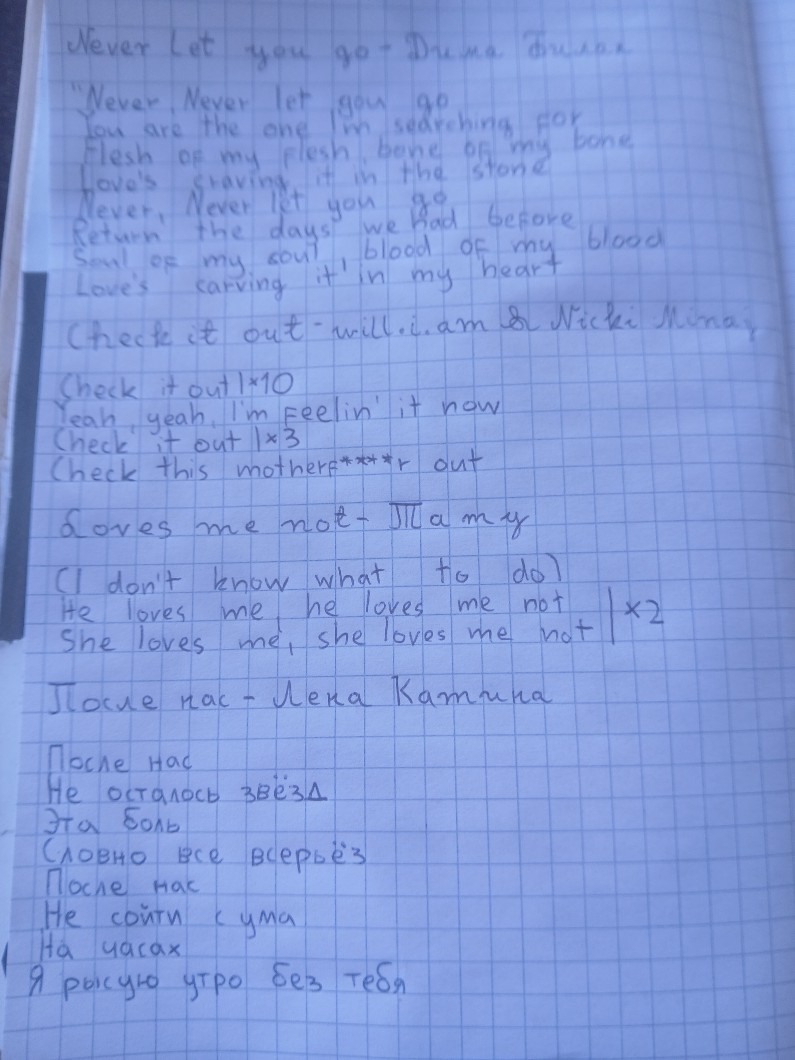 Never Let you go - Дима Билан
"Never, Never let you go
You are the one I'm searching for
Flesh of my flesh, bone of my bone
Love's craving it in the stone
Never, Never let you go
Return the days we had before
Soul of my soul, blood of my blood
Love's carving it in my heart
Check it out - will.i.am & Nicki Minaj
Check it out|×10
Yeah, yeah, I'm feelin' it now
Check it out |×3
Check this motherf****r out
Loves me not - Тату
(I don't know what to do)
He loves me, he loves me not
She loves me, she loves me not |×2
После нас - Лена Катина
После нас
Не осталось звёзд
Эта боль
Словно все всерьёз
После нас
Не сойти с ума
На часах
Я рысую утро без тебя